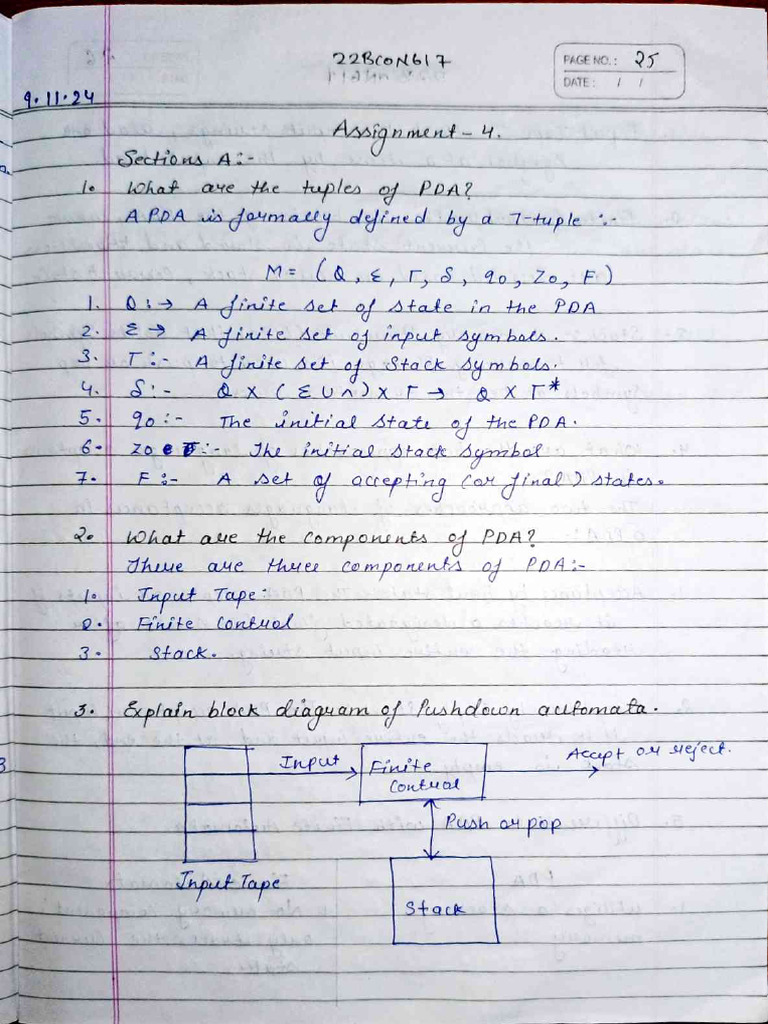 22BCON617
PAGE NO.: 25
DATE: / /
9.11.24
Assignment - 4.
Sections A:-
1. What are the tuples of PDA?
A PDA is formally defined by a 7-tuple :-
M = (Q, Σ, Γ, δ, q0, Z0, F)
1. Q: → A finite set of state in the PDA
2. Σ → A finite set of input symbols.
3. Γ :- A finite set of Stack symbols.
4. δ :- Q X (Σ ∪ ∧) X Γ → Q X Γ*
5. q0 :- The initial state of the PDA.
6. Z0 :- The initial stack symbol
7. F :- A set of accepting (or final) states.
2. What are the components of PDA?
There are three components of PDA:-
1. Input Tape:
2. Finite Control
3. Stack.
3. Explain block diagram of Pushdown automata.
Input
Finite
Control
Accept or reject.
Push or pop
Input Tape
Stack